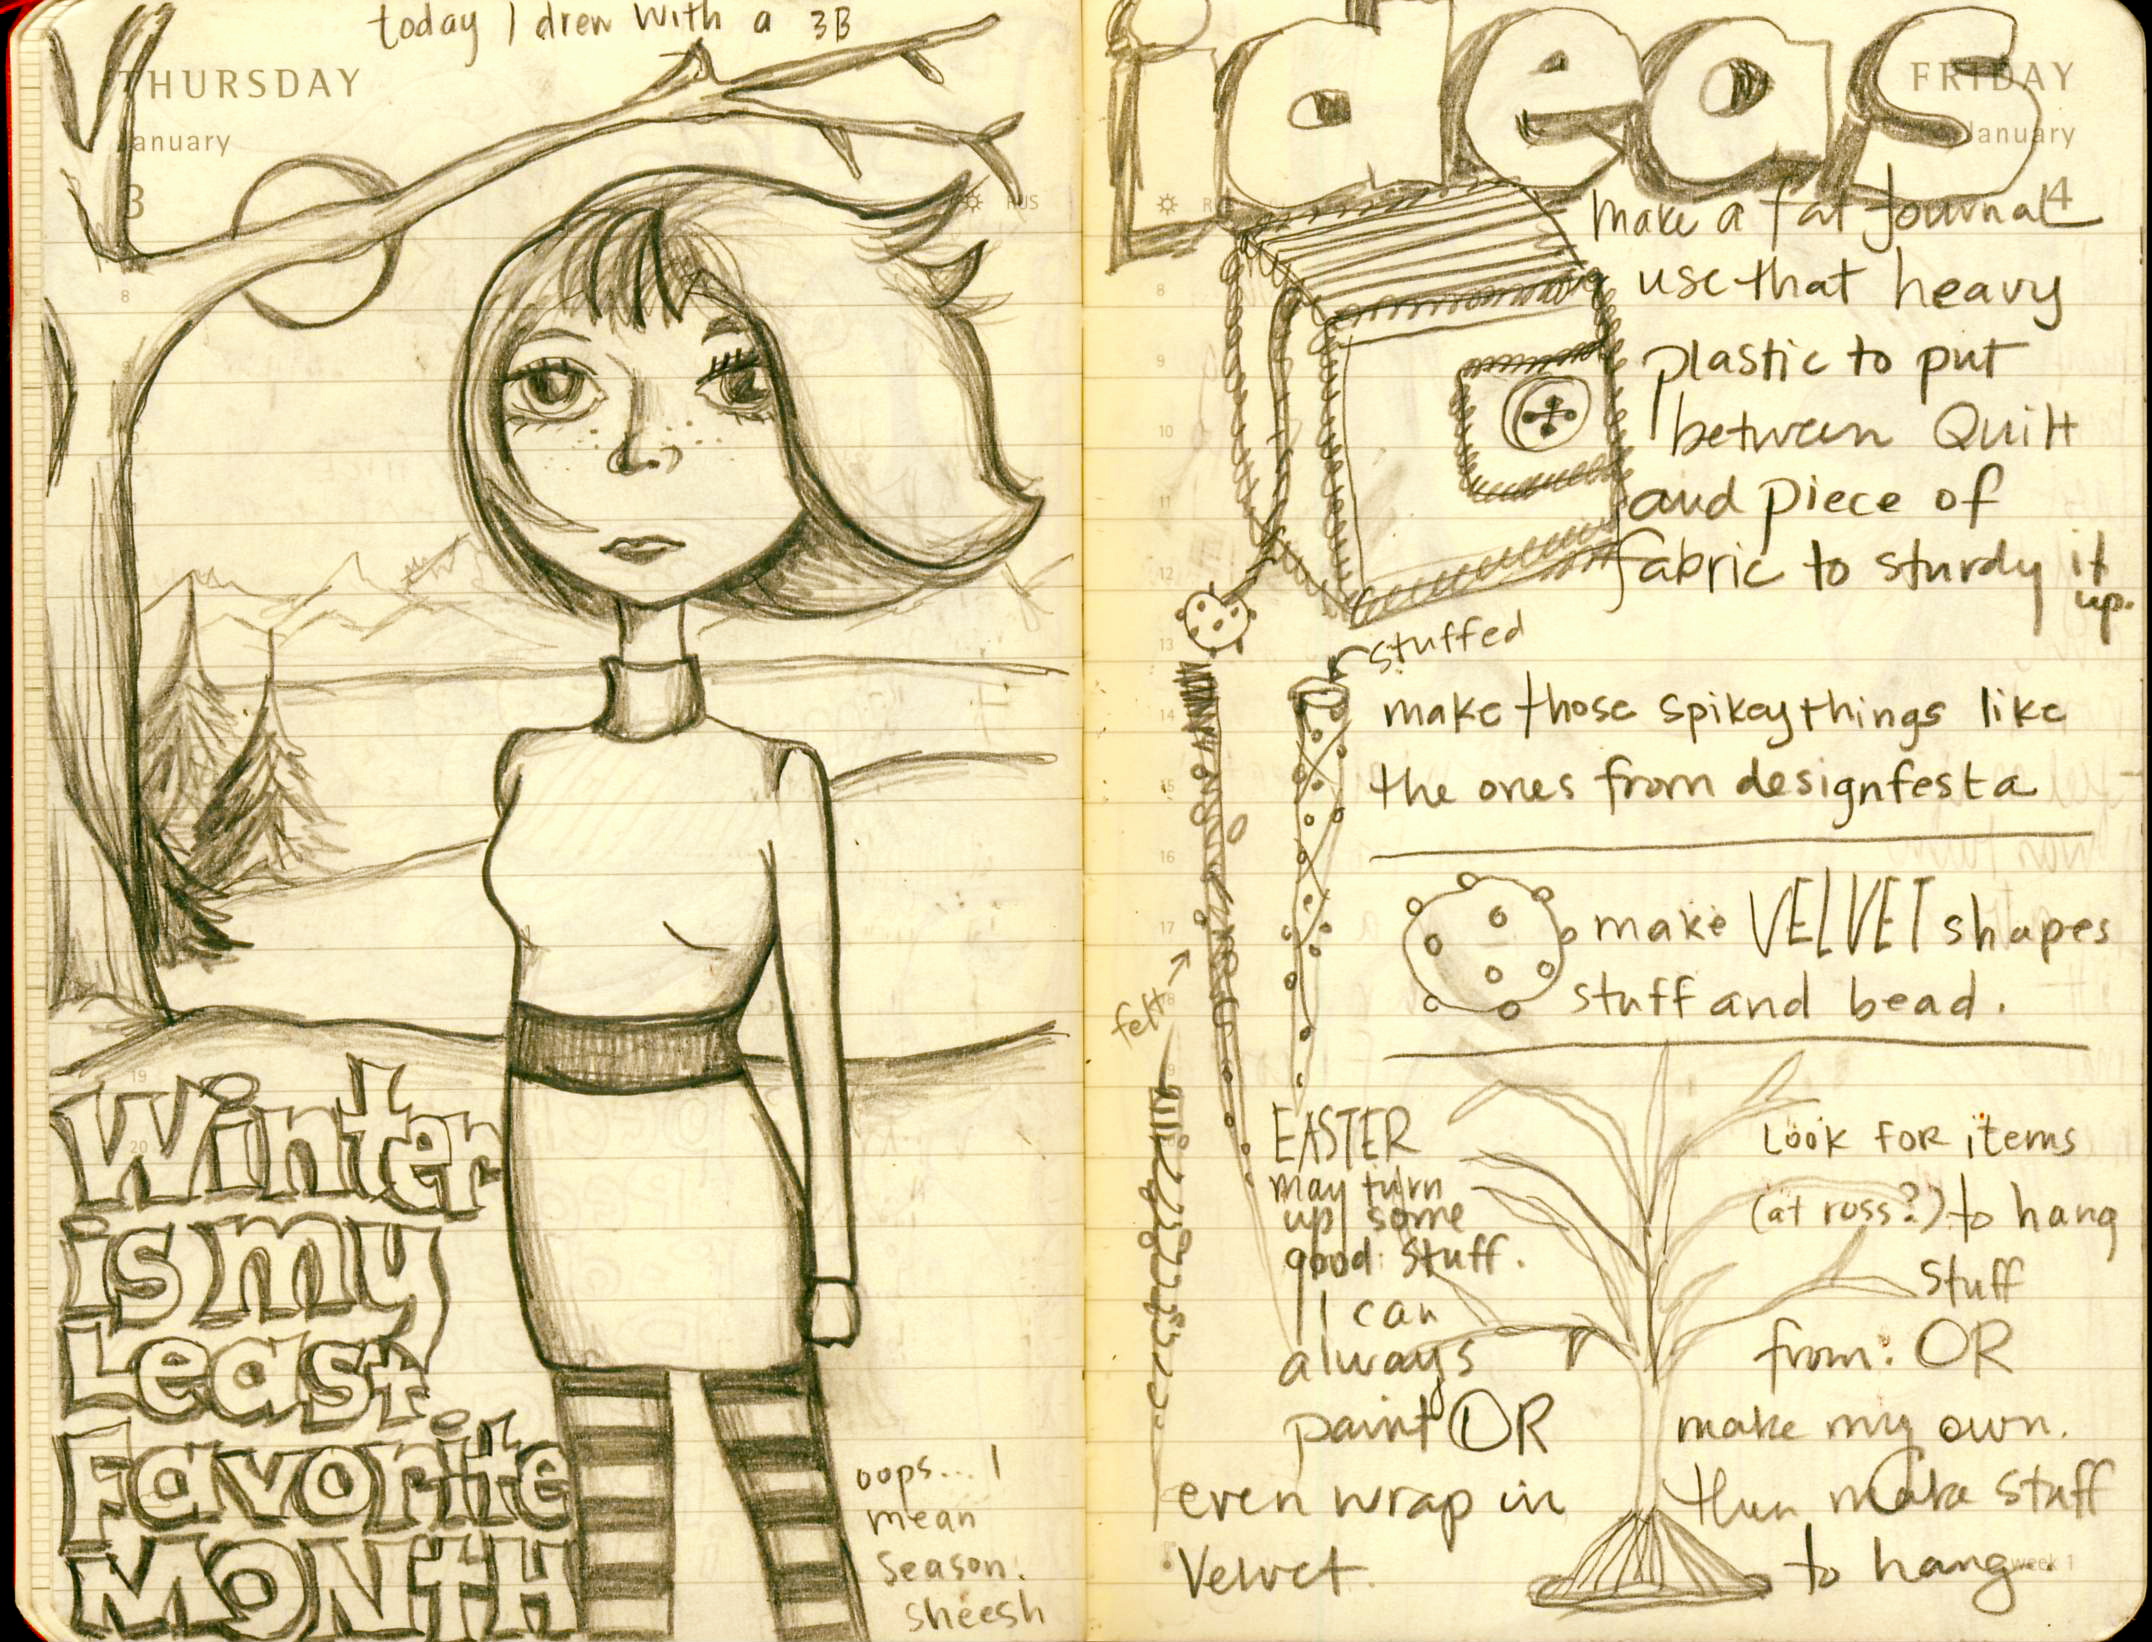 today I drew with a 3B
THURSDAY
January
3
RUS
8
19
20
Winter
is my
Least
Favorite
MONtH
oops... I
mean
Season.
Sheesh
ideas
FRIDAY
January
4
8
9
10
11
12
13
14
15
16
17
18
make a fat Journal
use that heavy
plastic to put
between Quilt
and piece of
fabric to sturdy it
up.
stuffed
make those spikey things like
the ones from designfesta
make VELVET shapes
stuff and bead.
felt
EASTER
may turn
up some
good stuff.
I can
always
paint OR
even wrap in
Velvet.
Look FOR items
(at ross?) to hang
stuff
from. OR
make my own.
then make stuff
to hang
week 1